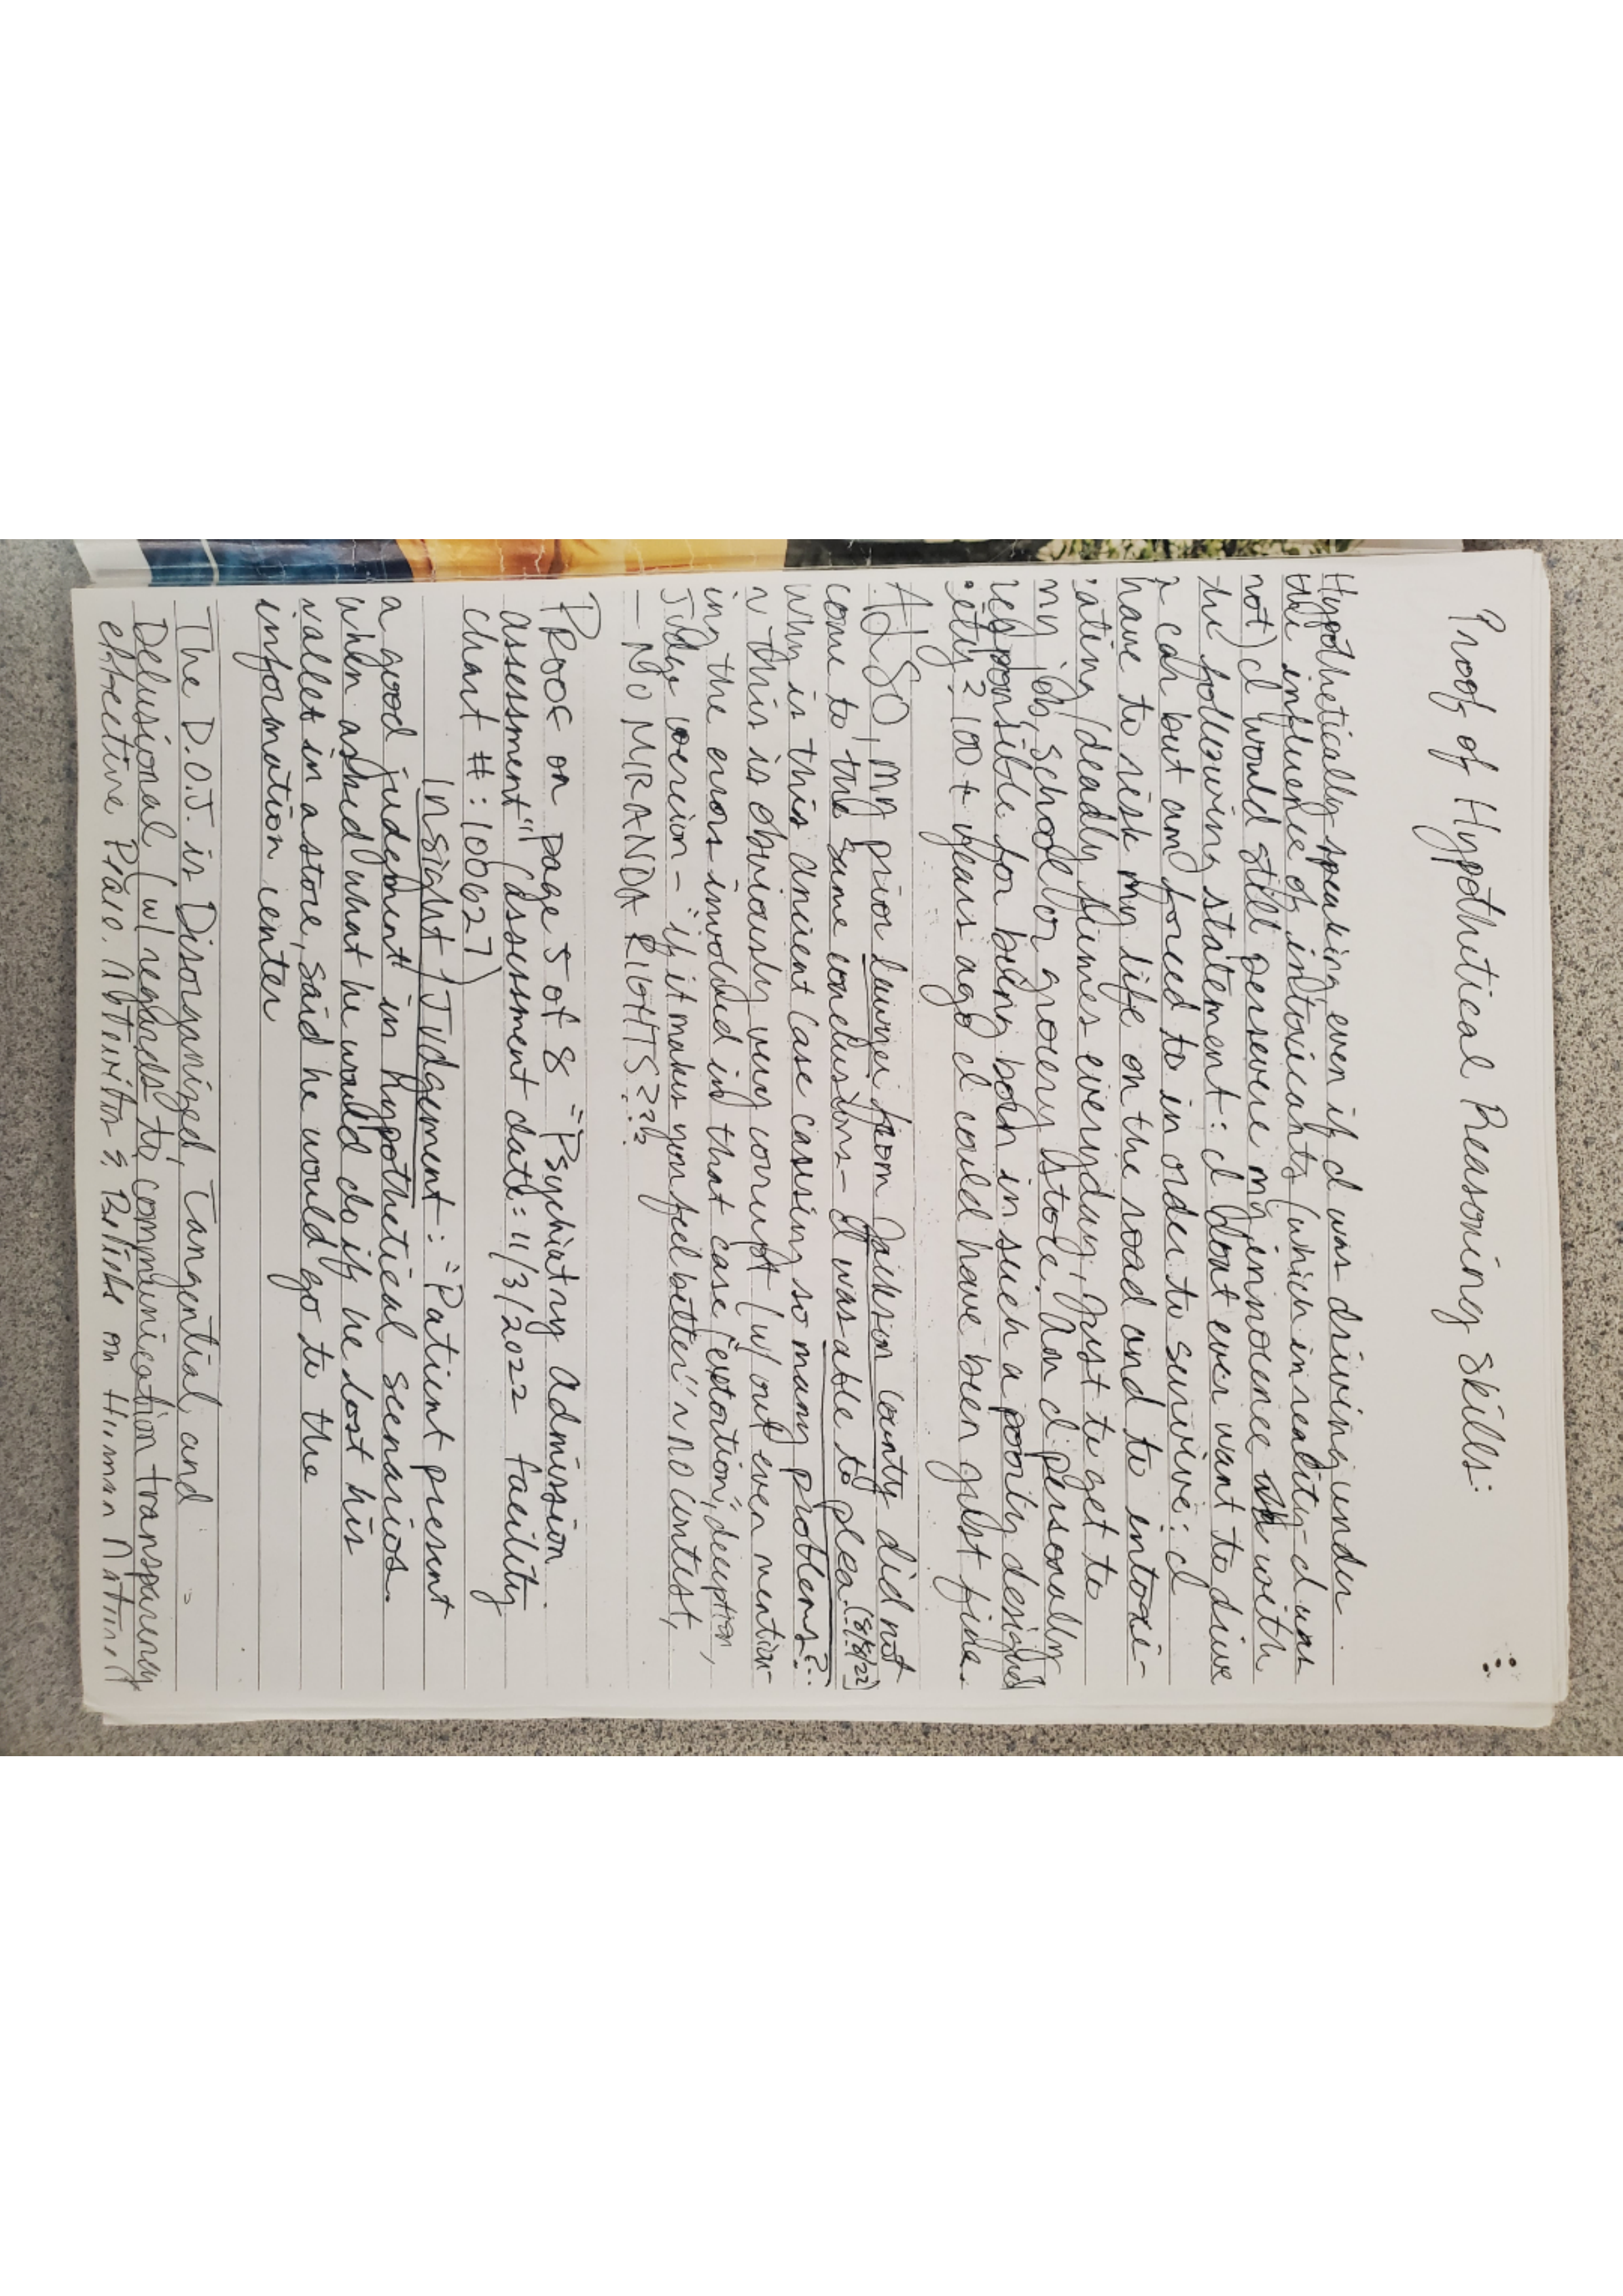 Proof of Hypothetical Reasoning Skills:
Hypothetically speaking, even if I was driving under
the influence of intoxicants (which in reality I was
not) I would still persevere my innocence with
the following statement: I dont ever want to drive
a car but am forced to in order to survive; I
have to risk my life on the road and to intoxi-
cating/deadly fumes everyday, just to get to
my job, school or grocery store. Am I personally
responsible for being born in such a poorly designed
society? 100+ years ago I could have been just fine.
ALSO, my prior lawyer from Jackson County did not
come to the same conclusions - I was able to plea. (8/8/22)
Why is this ancient case causing so many problems?
~ this is obviously very corrupt (w/out even mention-
ing the errors involved in that case, "extortion", deception,
Judge coercion - "if it makes you feel better" ~ no contest,
- NO MIRANDA RIGHTS???
PROOF on page 5 of 8 "Psychiatry Admission
Assessment" (assessment date: 11/3/2022 facility
chart #: 100627)
Insight/Judgement: "Patient present
a good judgment in hypothetical scenarios.
when asked what he would do if he lost his
wallet in a store, said he would go to the
information center
The D.O.J. is Disorganized, Tangential and
Delusional (w/ regards to communication transparency
effective on Human Nature)